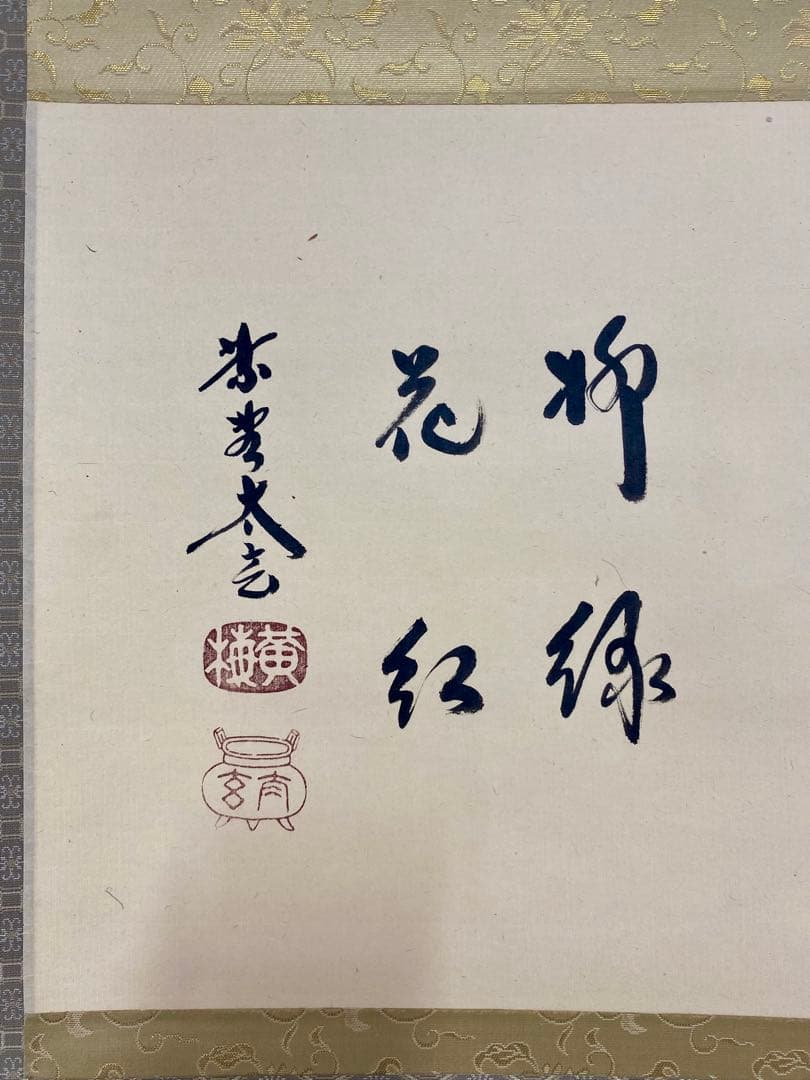 柳緑
花紅
紫野太玄
黄梅
太玄